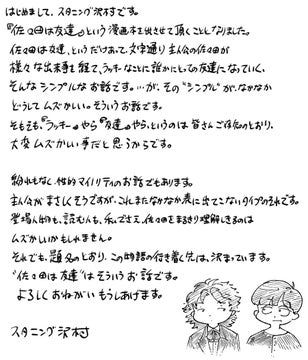 はじめまして、スタニング沢村です。
『佐々田は友達』という漫画本を出させて頂くこととなりました。
佐々田は友達、というだけあって、文字通り主人公の佐々田が
様々な出来事を経て、ラッキーなことに誰かにとっての友達になっていく、
そんなシンプルなお話です。…が、その"シンプル"が、なかなか
どうしてムズかしい。そういうお話です。
そもそも、『ラッキー』やら『友達』やら、というのは皆さんご存知のとおり、
大変ムズかしい事だと思うからです。
紛れもなく、性的マイノリティのお話でもあります。
主人公がまさしくそうですが、これまたなかなか表に出てこないタイプのそれです。
登場人物も、読む人も、私でさえ、佐々田をまるきり理解しきるのは
ムズかしいかもしれません。
それでも、題名のとおり、この物語の行き着く先は、決まっています。
"佐々田は友達"はそういうお話です。
よろしくおねがいもうしあげます。
スタニング沢村